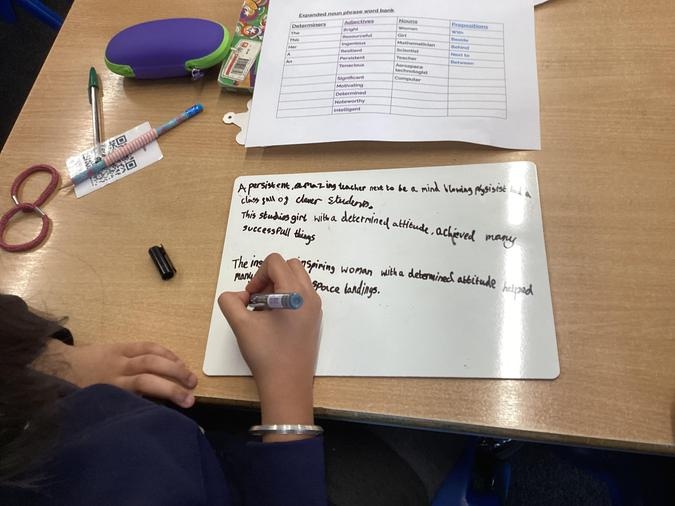 Expanded noun phrase word bank
Determiners Adjectives Nouns Prepositions
The Bright Woman With
This Resourceful Girl Beside
Her Ingenious Mathematician Behind
A Resilient Scientist Next to
An Persistent Teacher Between
Tenacious Aerospace technologist
Significant Computer
Motivating
Determined
Noteworthy
Intelligent
A persistent, amazing teacher next to be a mind blowing physisist had a
class full of clever students.
This studios girl with a determined attitude, achieved many
successfull things
The inspiring woman with a determined attitude helped
many space landings.